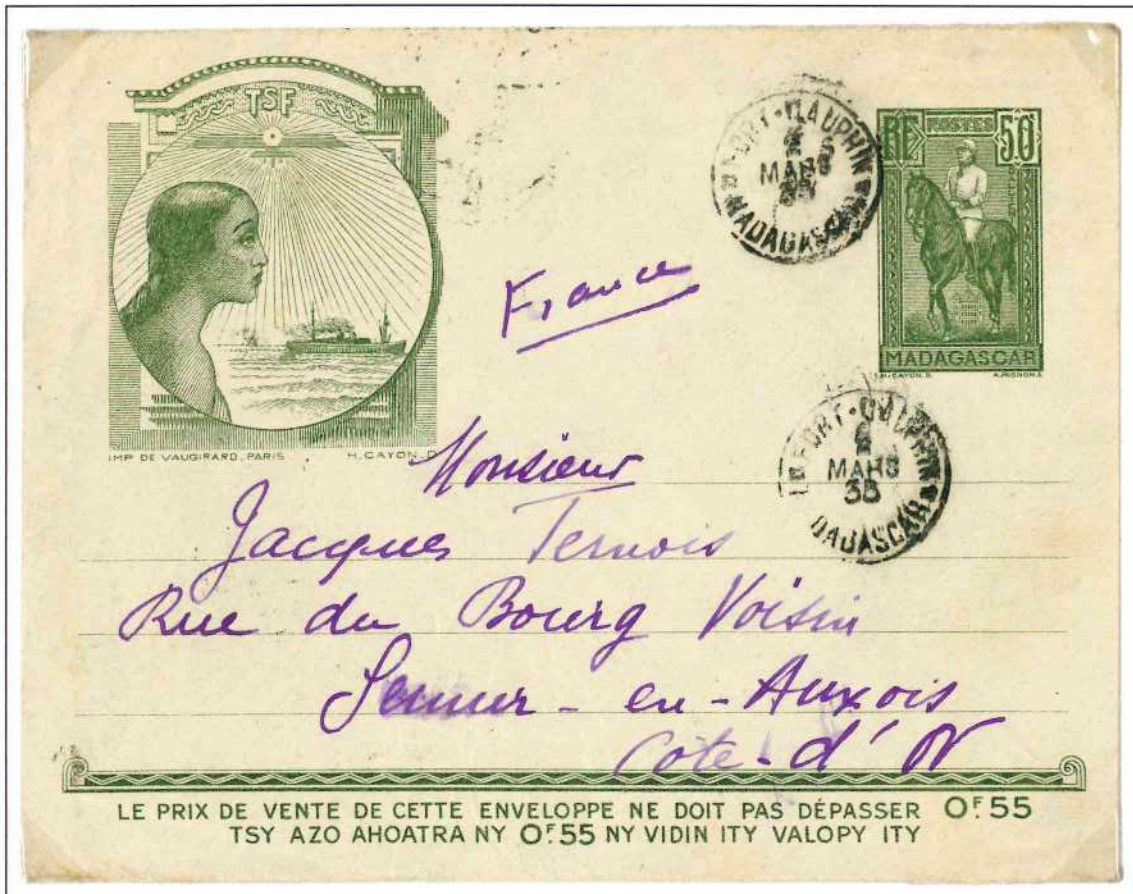 TSF
IMP DE VAUGIRARD, PARIS H. CAYON. D
FORT-DAUPHIN
MARS
MADAGASCAR
RF POSTES 50
MADAGASCAR
J.H. CAYON. D. A. MIGNON. S
France
FORT-DAUPHIN
2
MARS
35
Monsieur
Jacques Ternois
Rue du Bourg Voisin
Semur-en-Auxois
Côte-d'Or
LE PRIX DE VENTE DE CETTE ENVELOPPE NE DOIT PAS DÉPASSER 0F.55
TSY AZO AHOATRA NY 0F.55 NY VIDIN ITY VALOPY ITY